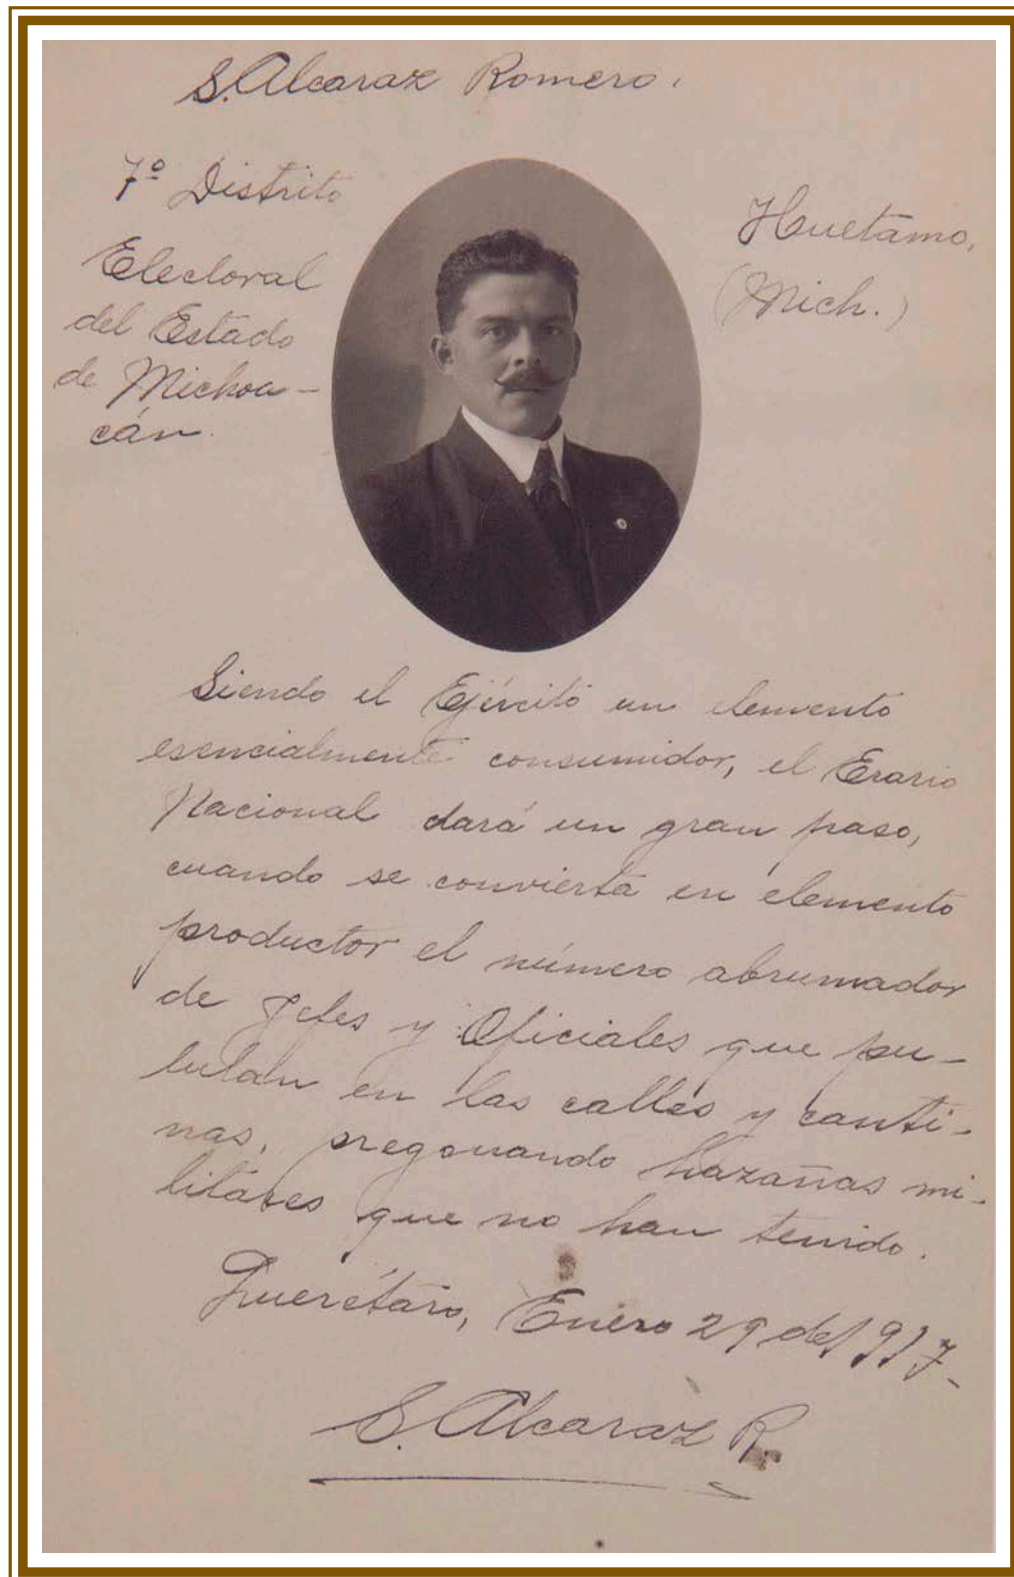 S. Alcaraz Romero.
7º Distrito
Electoral
del Estado
de Michoa-
cán.
Huetamo,
(Mich.)
Siendo el Ejército un elemento
esencialmente consumidor, el Erario
Nacional dará un gran paso,
cuando se convierta en elemento
productor el número abrumador
de Jefes y Oficiales que pu-
lulan en las calles y canti-
nas, pregonando hazañas mi-
litares que no han tenido.
Querétaro, Enero 29 de 917-
S. Alcaraz R.